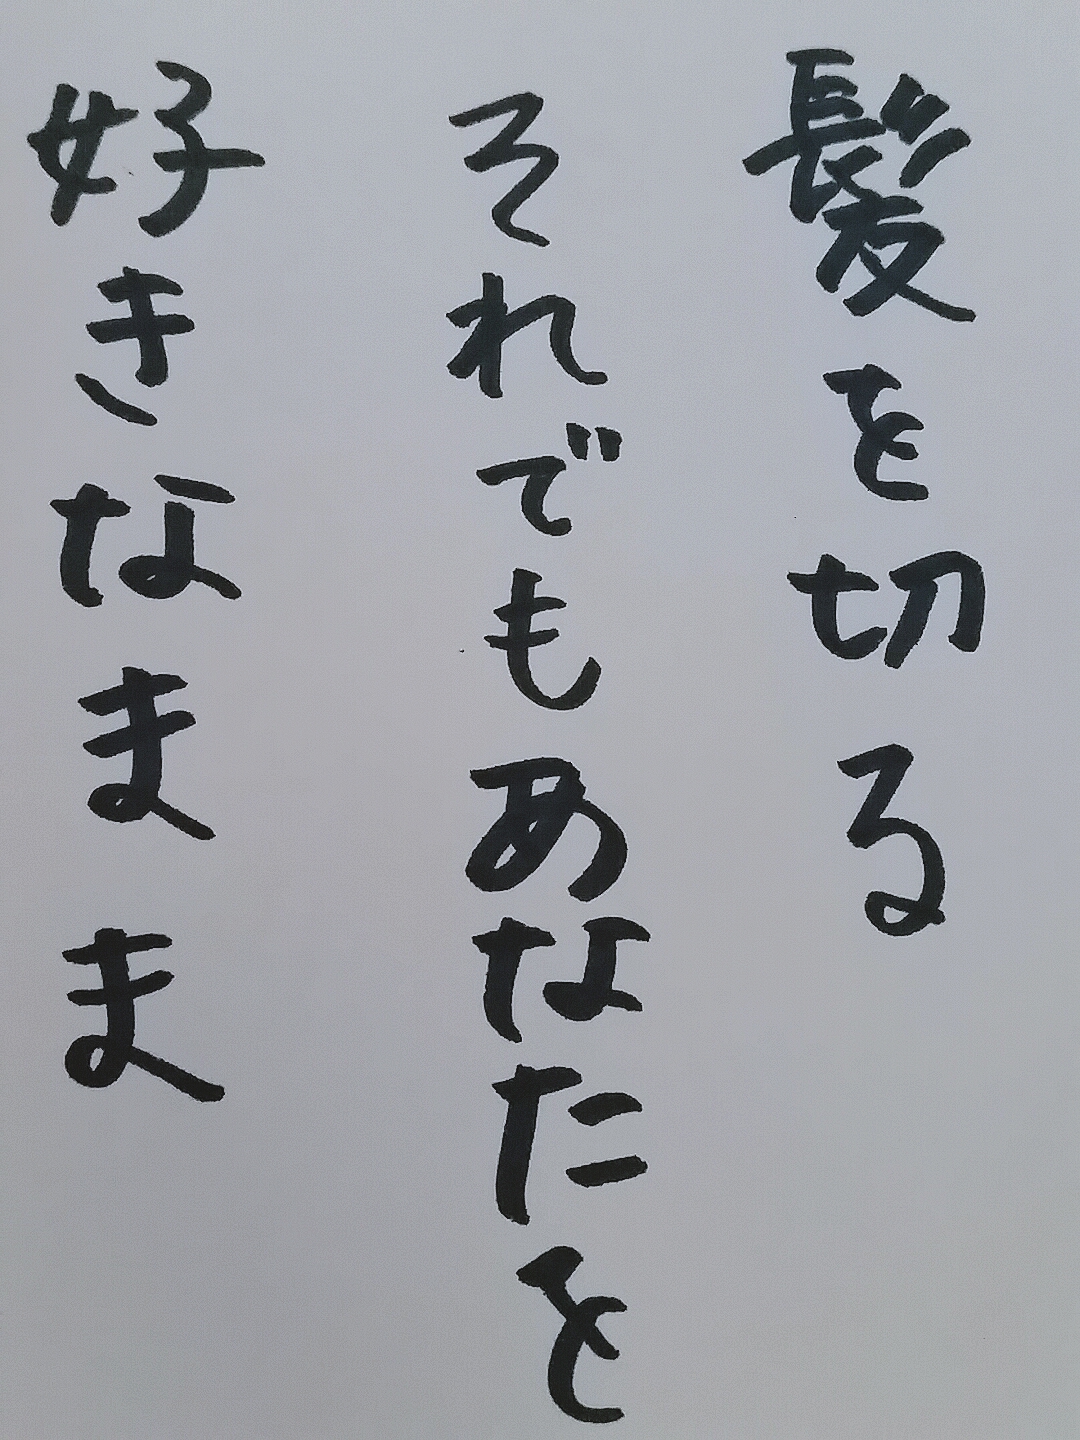 髪を切る
それでもあなたを
好きなまま